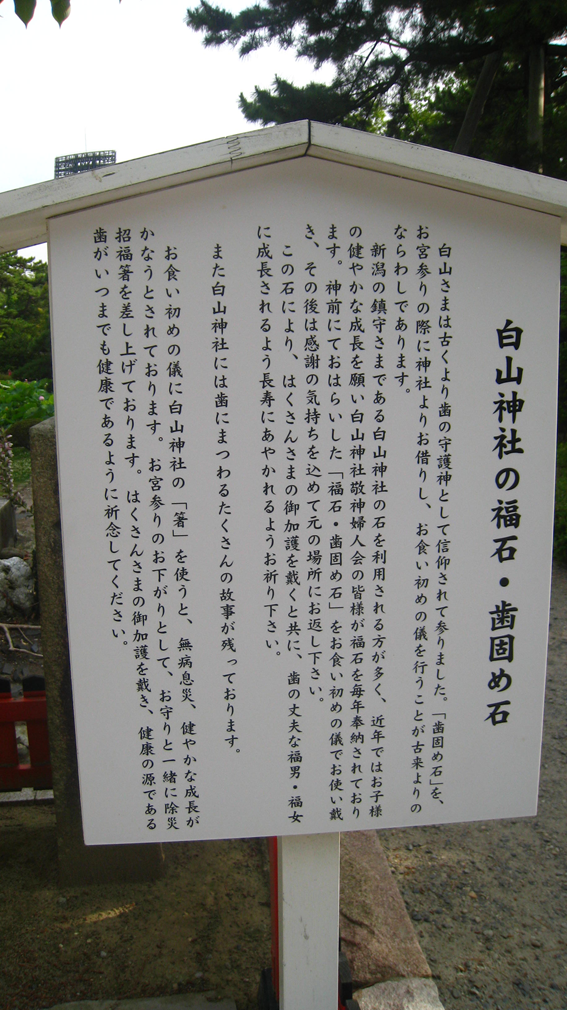 白山神社の福石・歯固め石
白山さまは古くより歯の守護神として信仰されて参りました。「歯固め石」を、
お宮参りの際に神社よりお借りし、お食い初めの儀を行うことが古来よりの
ならわしであります。
新潟の鎮守さまである白山神社の石を利用される方が多く、近年ではお子様
の健やかな成長を願い白山神社敬神婦人会の皆様が福石を毎年奉納されており
ます。神前にておはらいした「福石・歯固め石」をお食い初めの儀でお使い戴
き、その後は感謝の気持ちを込めて元の場所にお返し下さい。
この石により、はくさんさまの御加護を戴くと共に、歯の丈夫な福男・福女
に成長されるよう長寿にあやかれるようお祈り下さい。
また白山神社には歯にまつわるたくさんの故事が残っております。
お食い初めの儀に白山神社の「箸」を使うと、無病息災、健やかな成長が
かなうとされております。お宮参りのお下がりとして、お守りと一緒に除災
招福箸を差し上げております。はくさんさまの御加護を戴き、健康の源である
歯がいつまでも健康であるように祈念してください。